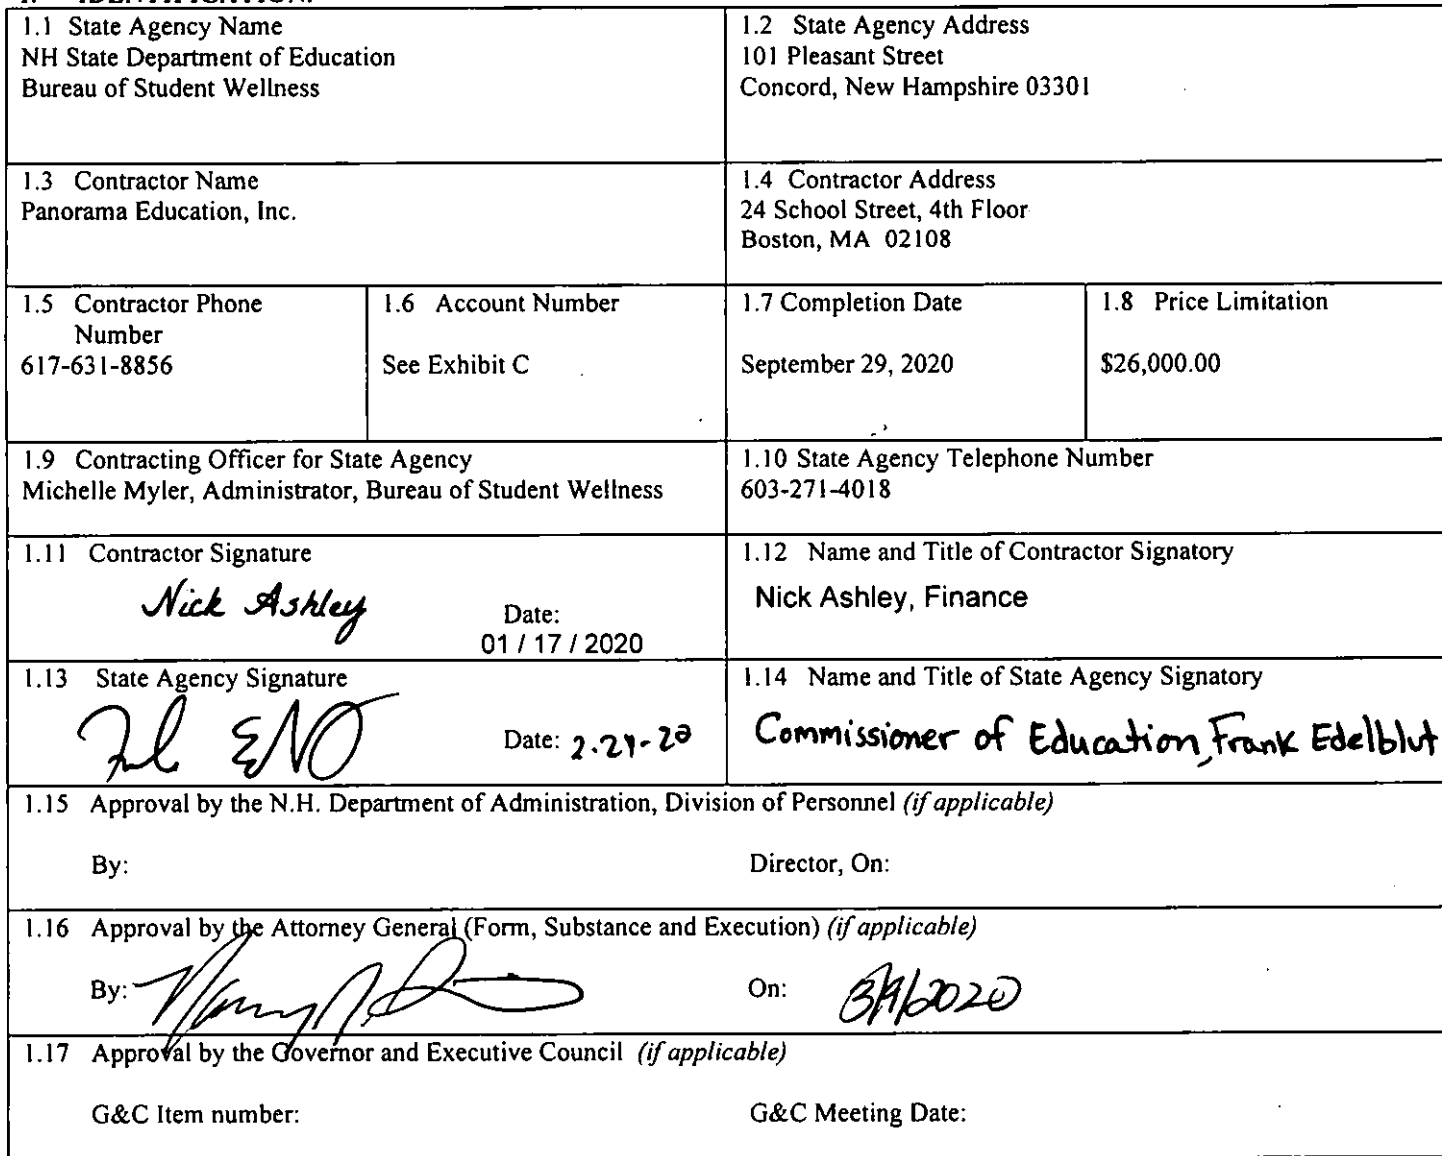 1.1 State Agency Name
NH State Department of Education
Bureau of Student Wellness
1.2 State Agency Address
101 Pleasant Street
Concord, New Hampshire 03301
1.3 Contractor Name
Panorama Education, Inc.
1.4 Contractor Address
24 School Street, 4th Floor
Boston, MA 02108
1.5 Contractor Phone
Number
617-631-8856
1.6 Account Number
See Exhibit C
1.7 Completion Date
September 29, 2020
1.8 Price Limitation
$26,000.00
1.9 Contracting Officer for State Agency
Michelle Myler, Administrator, Bureau of Student Wellness
1.10 State Agency Telephone Number
603-271-4018
1.11 Contractor Signature
Nick Ashley
Date:
01 / 17 / 2020
1.12 Name and Title of Contractor Signatory
Nick Ashley, Finance
1.13 State Agency Signature
Date:
1.14 Name and Title of State Agency Signatory
Commissioner of Education, Frank Edelblut
1.15 Approval by the N.H. Department of Administration, Division of Personnel (if applicable)
By:
Director, On:
1.16 Approval by the Attorney General (Form, Substance and Execution) (if applicable)
By:
On: 3/9/2020
1.17 Approval by the Governor and Executive Council (if applicable)
G&C Item number:
G&C Meeting Date: